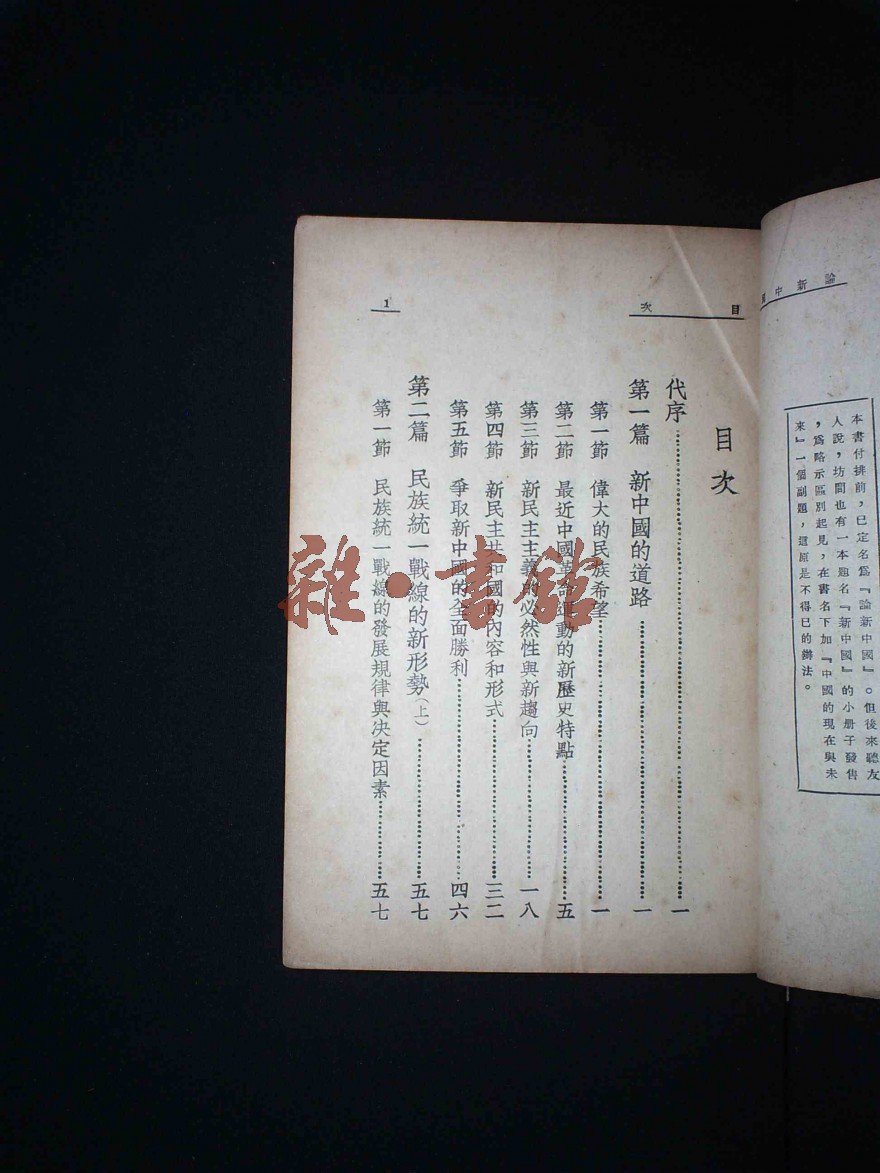 論新中國
本書付排前，已定名爲『論新中國』。但後來聽友
人說，坊間也有一本題名『新中國』的小册子發售
，爲略示區別起見，在書名下加『中國的現在與未
來』一個副題，這原是不得已的辦法。
目次
1
目次
代序……一
第一篇 新中國的道路……一
第一節 偉大的民族希望……一
第二節 最近中國革命運動的新歷史特點……五
第三節 新民主主義的必然性與新趨向……一八
第四節 新民主共和國的內容和形式……三二
第五節 爭取新中國的全面勝利……四六
第二篇 民族統一戰線的新形勢（上）……五七
第一節 民族統一戰線的發展規律與決定因素……五七
雜·書館